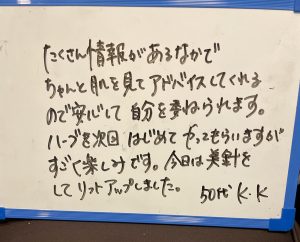 たくさん情報があるなかで
ちゃんと肌を見てアドバイスしてくれる
ので安心して自分を委ねられます。
ハーブを次回はじめてやってもらいますが
すごく楽しみです。今日は美針を
してリフトアップしました。
50代 K.K